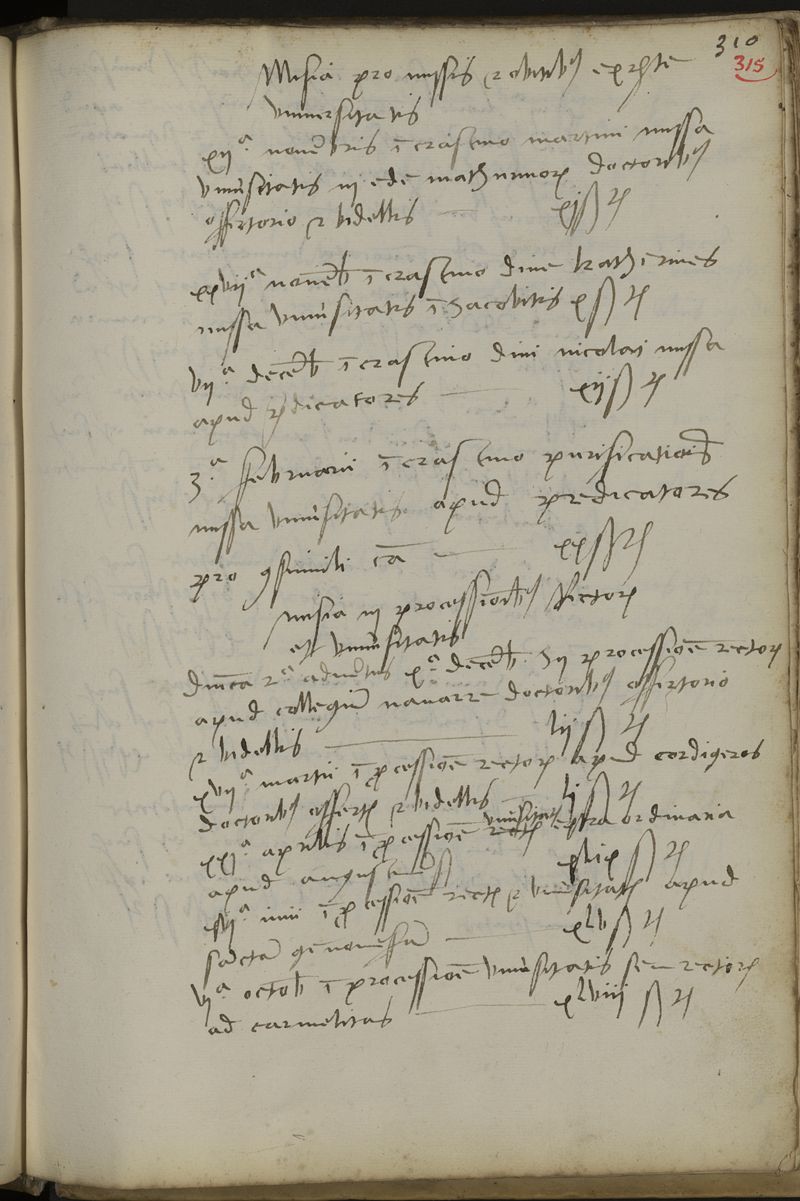 310
315
Misia pro missis et obitibus ex parte
universitatis
xii a novembris i crastino martini missa
universitatis in ede mathurinorum doctoribus
offertorio et bidellis — xj ß p
xxvii a novemb i crastino dive katherines
missa universitatis i Jacobitis x ß p
vii a decemb i crastino divi nicolai missa
apud predicatores — xii ß p
3 a februarii i crastino purificationis
missa universitatis apud predicatores
pro consimili ca — xx ß p
misia in processionibus Rectorum
et universitatis
dnica 2 a adventus x a decemb In processione rectorum
apud collegium navarre doctoribus offertorio
et bidellis — lii ß p
xvii a martii i processione rectorum apud cordigeros
doctoribus offert et bidellis — li ß p
xxi a aprilis i processione universitatis extra ordinaria
apud augustinos xlix ß p
a iunii i processione rect et universitatis apud
sancta genovefa — xlv ß p
vi a octob i processione universitatis seu rectorum
ad carmelitas — xlviii ß p